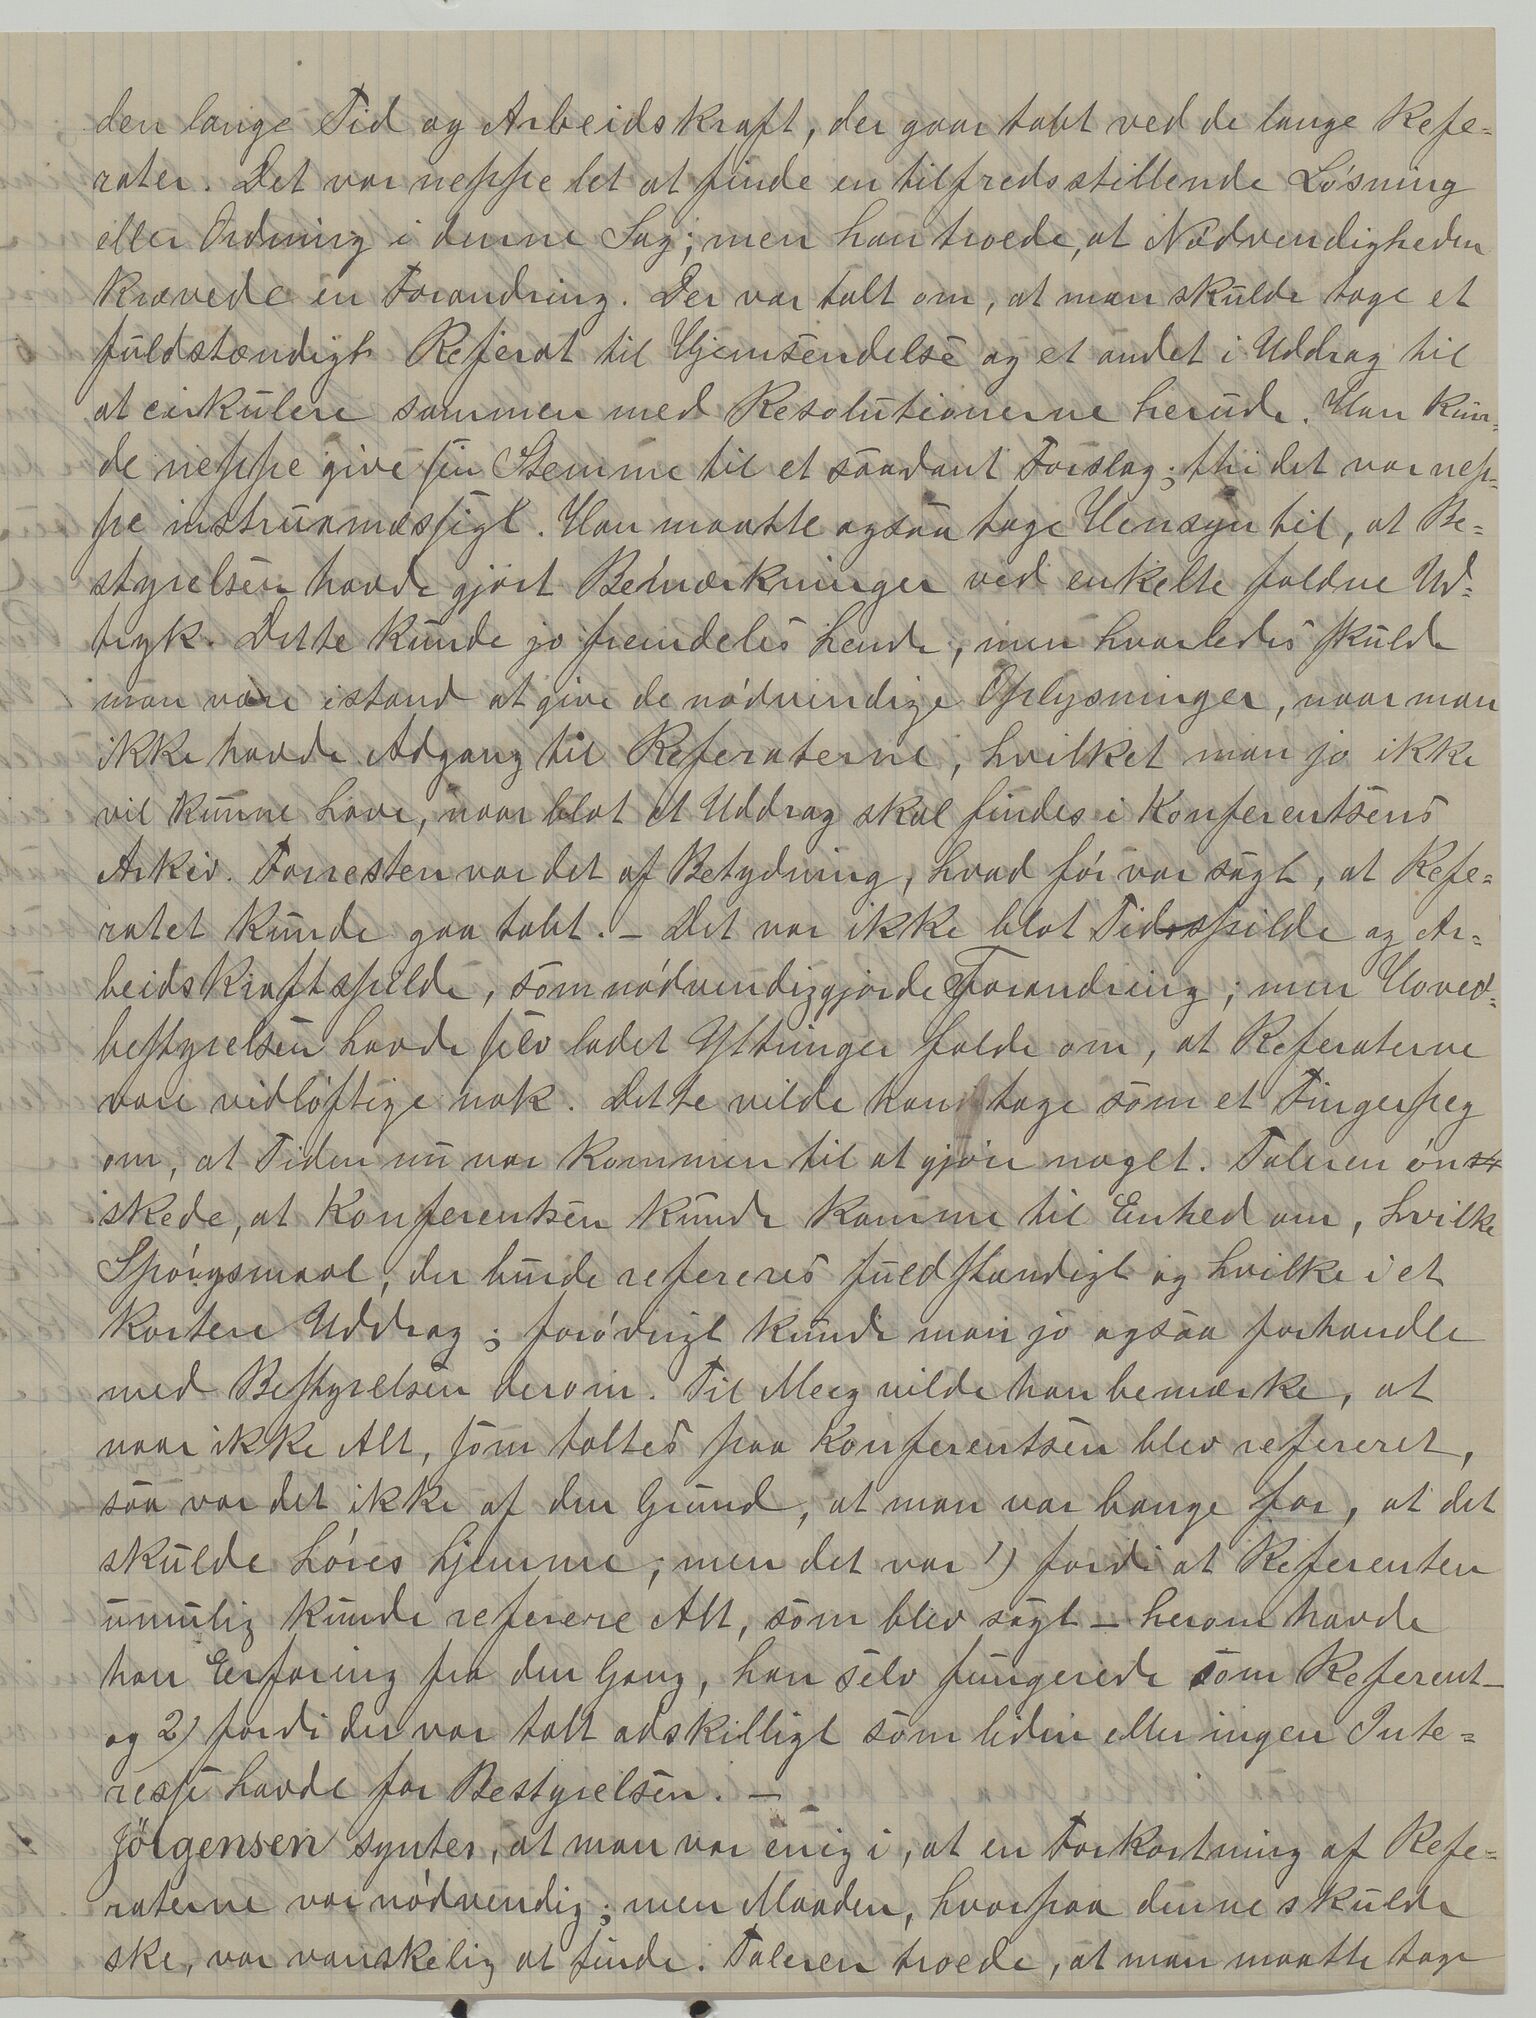 den lange Tid og Arbeidskraft, der gaar tabt ved de lange Refe=
rater. Det var neppe let at finde en tilfredsstillende Løsning
eller Ordning i denne Sag; men han troede, at Nødvendigheden
krævede en Forandring. Der var talt om, at man skulde tage et
fuldstændigt Referat til Hjemsendelse og et andet i Uddrag til
at cirkulere sammen med Resolutionerne herude. Han kun=
de neppe give sin Stemme til et saadant Forslag; thi det var nep=
pe instruxmæssigt. Han maatte ogsaa tage Hensyn til, at Be=
styrelsen havde gjort Bemærkninger ved enkelte faldne Ud=
tryk. Dette kunde jo fremdeles hende, men hvorledes skulde
man være istand at give de nødvendige Oplysninger, naar man
ikke havde Adgang til Referaterne, hvilket man jo ikke
vil kunne have, naar blot et Uddrag skal findes i Konferentsens
Arkiv. Forresten var det af Betydning, hvad før var sagt, at Refe=
ratet kunde gaa tabt. – Det var ikke blot Tidsspilde og Ar=
beidskraftspilde, som nødvendiggjorde Forandring; men Hoved=
bestyrelsen havde selv ladet Yttringer falde om, at Referaterne
vare vidløftige nok. Dette vilde han tage som et Fingerpeg
om, at Tiden nu var kommen til at gjøre noget. Taleren øn
skede, at Konferentsen kunde komme til Enhed om, hvilke
Spørgsmaal, der burde refereres fuldstændigt og hvilke i et
kortere Uddrag; forøvrigt kunde man jo ogsaa forhandle
med Bestyrelsen derom. Til Meeg vilde han bemærke, at
naar ikke Alt, som taltes paa Konferentsen blev refereret,
saa var det ikke af den Grund, at man var bange for, at det
skulde høres hjemme; men det var 1) fordi at Referenten
umulig kunde referere Alt, som blev sagt – herom havde
han Erfaring fra den Gang, han selv fungerede som Referent –
og 2) fordi der var talt adskilligt som liden eller ingen Inte=
resse havde for Bestyrelsen. –
Jörgensen syntes, at man var enig i, at en Forkortning af Refe=
raterne var nødvendig; men Maaden, hvorpaa denne skulde
ske, var vanskelig at finde. Taleren troede, at man maatte tage